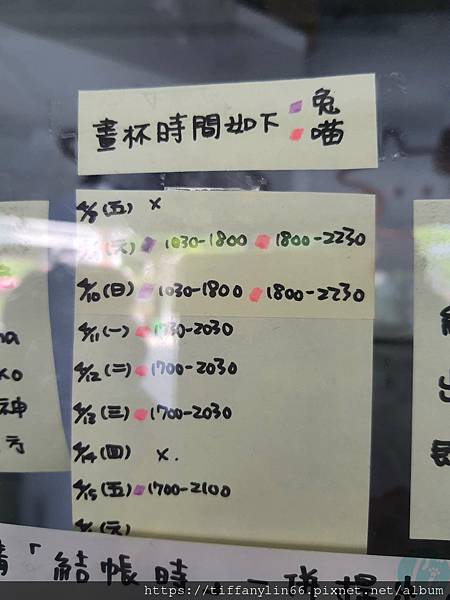 畫杯時間如下 兔
喵
4/8 (五) x
(六) 1030-1800 1800-2230
4/10 (日) 1030-1800 1800-2230
4/11 (一) 1730-2030
4/12 (二) 1700-2030
4/13 (三) 1700-2030
4/14 (四) x.
4/15 (五) 1700-2100
(六)
na
xo
神
方
出
「結帳時
https://tiffanylin66.pixnet.net/album